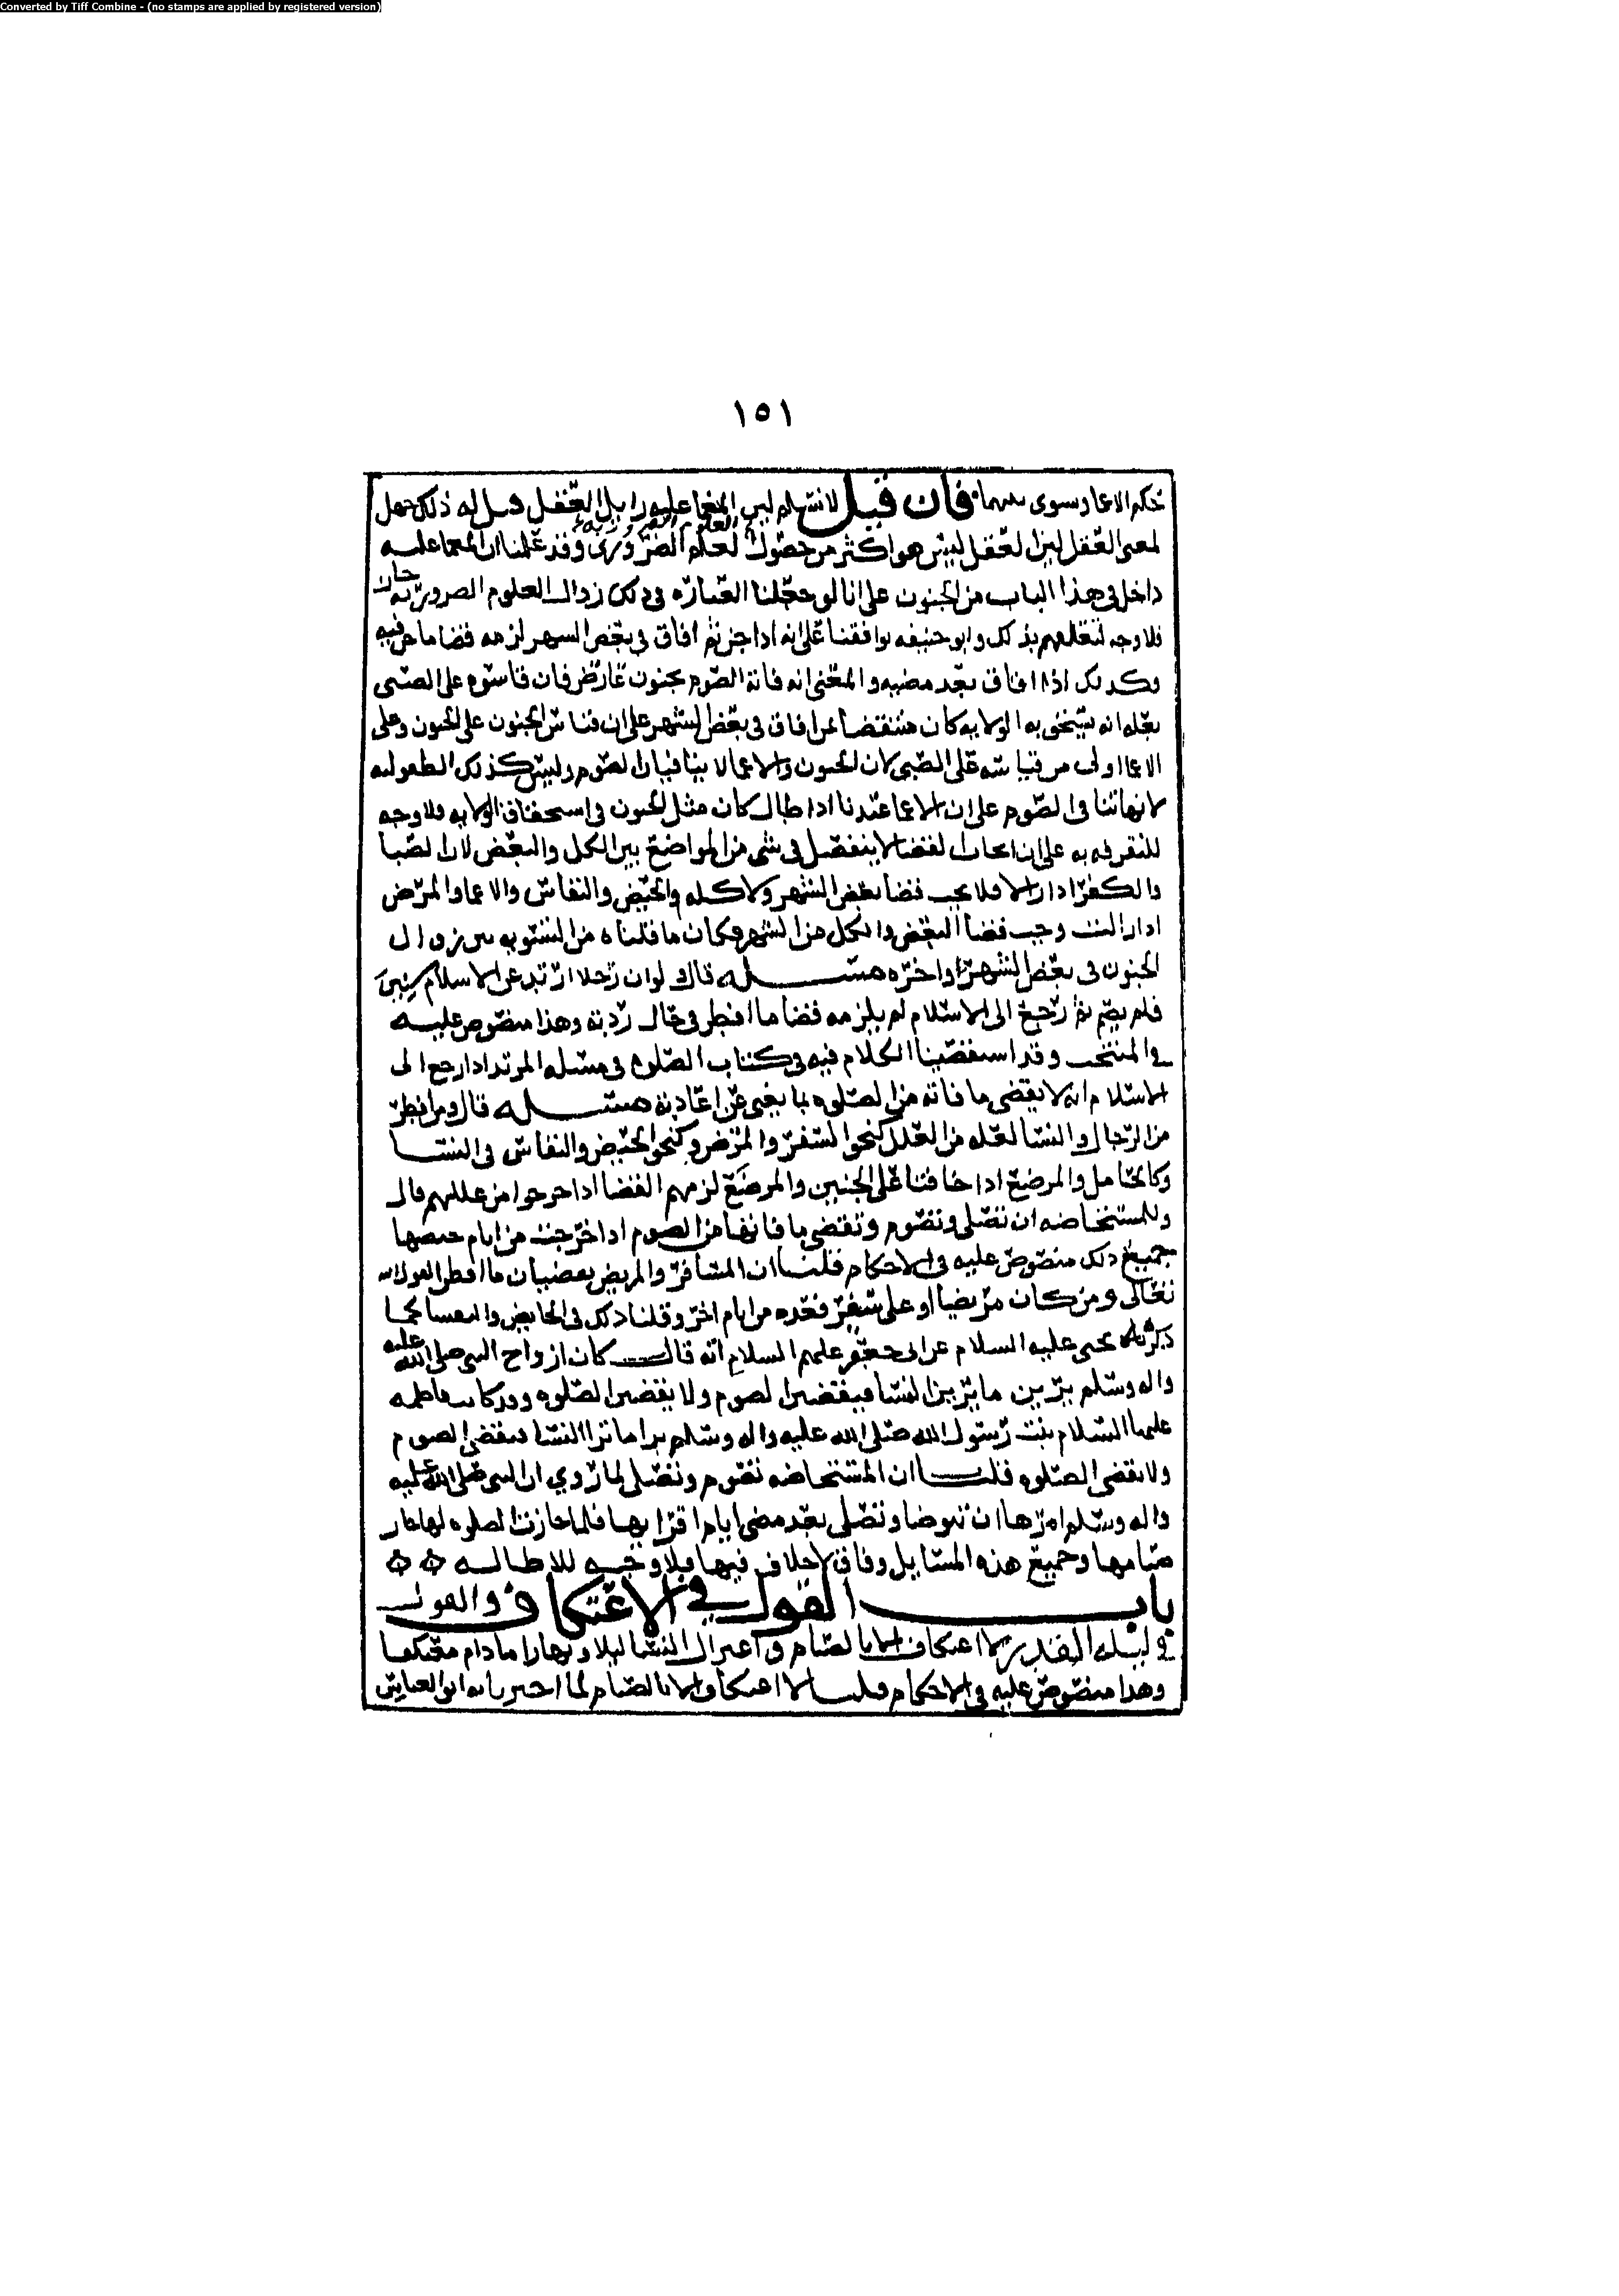 Converted by Tiff Combine - (no stamps are applied by registered version)
١٥١
حكم الاغما وسوى بينهما فان قيل لا نسلم ليس المغما عليه زايل العقل قيل له ذلك جهل
العلوم الضرورية
لمعنى العقل ليس العقل ليس هو اكثر من حصول العلم الضروري وقد علمنا ان المغما عليه
داخل في هذا الباب من الجنون على انا لو جعلنا العبارة في ذلك زوال العلوم الضرورية جاز
فلا وجه لتعلقهم بذلك وابو حنيفه يوافقنا على انه اذا جن ثم افاق في بعض الشهر لزمه قضا ما مضى فيه
وكذلك اذا افاق بعد مضيه والمعنى انه فاته الصوم بجنون عارض فان قاسوه على الصبي
بعله انه يستحق به الولايه كان منتقضا بمن افاق في بعض الشهر على ان قياس الجنون على الجنون وعلى
الاغما اولى من قياسه على الصبي لان الجنون والاغما لا ينافيان الصوم وليس كذلك الطفوليه
لانها تنافى الصوم على ان الاغما عندنا اذا طال كان مثل الجنون في استحقاق الولايه فلا وجه
للتفرقه به على ان ايجاب القضا لا ينفصل في شي من المواضع بين الكل والبعض لان الصبا
والكفر اذا زالا فلا يجب قضا بعض الشهر ولا كله والحيض والنفاس والاغما والمرض
اذا زالت وجب قضا البعض والكل من الشهر فكان ما قلناه من التسويه بين زوال
الجنون في بعض الشهر او اخره مسئله قال لو ان رجلا ارتد عن الاسلام سنين
فلم يصم ثم رجع الى الاسلام لم يلزمه قضا ما افطر في حال ردته وهذا منصوص عليه
في المنتخب وقد استقصينا الكلام فيه في كتاب الصلوه في مسئله المرتد اذا رجع الى
الاسلام انه لا يقضي ما فاته من الصلوه بما يغني عن اعادته مسئله قال ومن افطر
من الرجال والنسا لعله من العلل كنحو السفر والمرض وكنحو الحيض والنفاس في النسا
وكالحامل والمرضع اذا خافتا على الجنين والمرضع لزمهم القضا اذا خرجوا من عللهم قال
وللمستحاضه ان تصلي وتصوم وتقضي ما فاتها من الصوم اذا خرجت من ايام حيضها
جميع ذلك منصوص عليه في الاحكام قلنا ان المسافر والمريض يقضيان ما افطرا لقول الله
تعالى ومن كان مريضا او على سفر فعده من ايام اخر وقلنا ذلك في الحايض والنفسا لما
ذكره يحيى عليه السلام عن ابي جعفر عليهم السلام انه قال كان ازواج النبي صلى الله عليه
واله وسلم يرين ما يرين النسا فيقضين الصوم ولا يقضين الصلوه وقد كانت فاطمه
عليها السلام بنت رسول الله صلى الله عليه واله وسلم ترا ما ترا النسا فتقضي الصوم
ولا تقضي الصلوه قلنا ان المستحاضه تصوم وتصلي لما روي ان النبي صلى الله عليه
واله وسلم امرها ان تتوضا وتصلي بعد مضي ايام اقرايها فلما جازت الصلوه لها جاز
صيامها وجميع هذه المسايل وفاق لا خلاف فيها فلا وجه للاطاله
باب القول في الاعتكاف والقول
في ليله القدر لا اعتكاف الا بالصيام واعتزال النسا ليلا ونهارا ما دام معتكفا
وهذا منصوص عليه في الاحكام قلنا لا اعتكاف الا بالصيام لما اخبرنا به ابو العباس